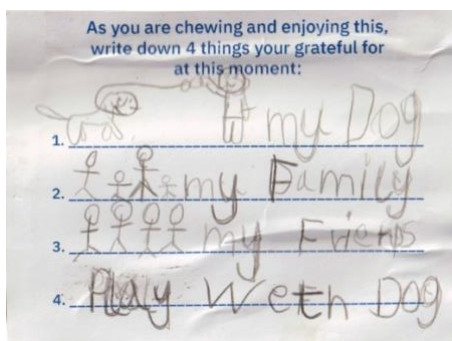 As you are chewing and enjoying this,
write down 4 things your grateful for
at this moment:
1. my Dog
2. my Family
3. my Friends
4. Play Weth Dog